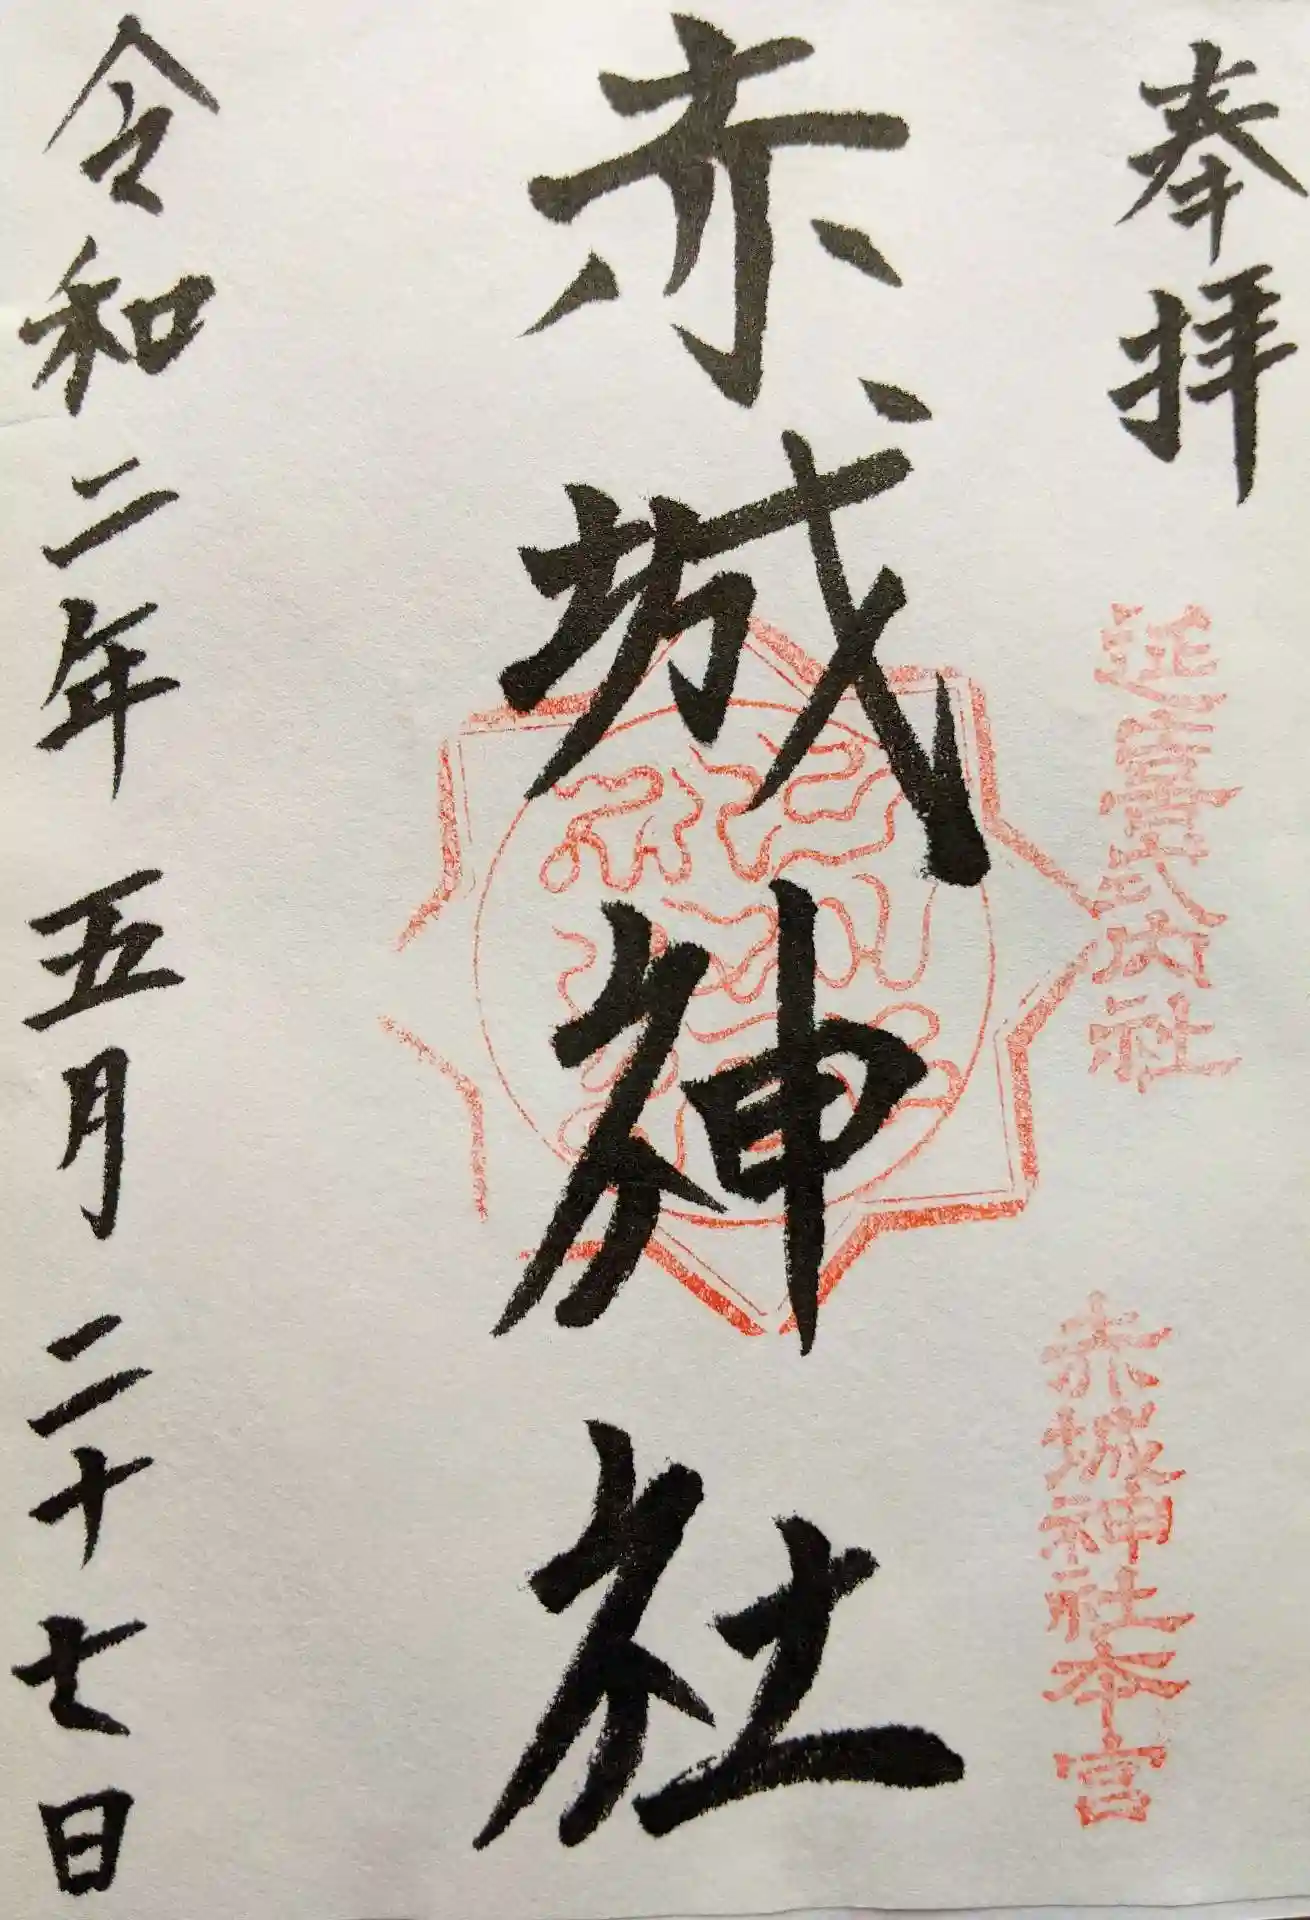 奉拝
延喜式内社
赤城神社本宮
赤城神社
令和二年五月二十七日